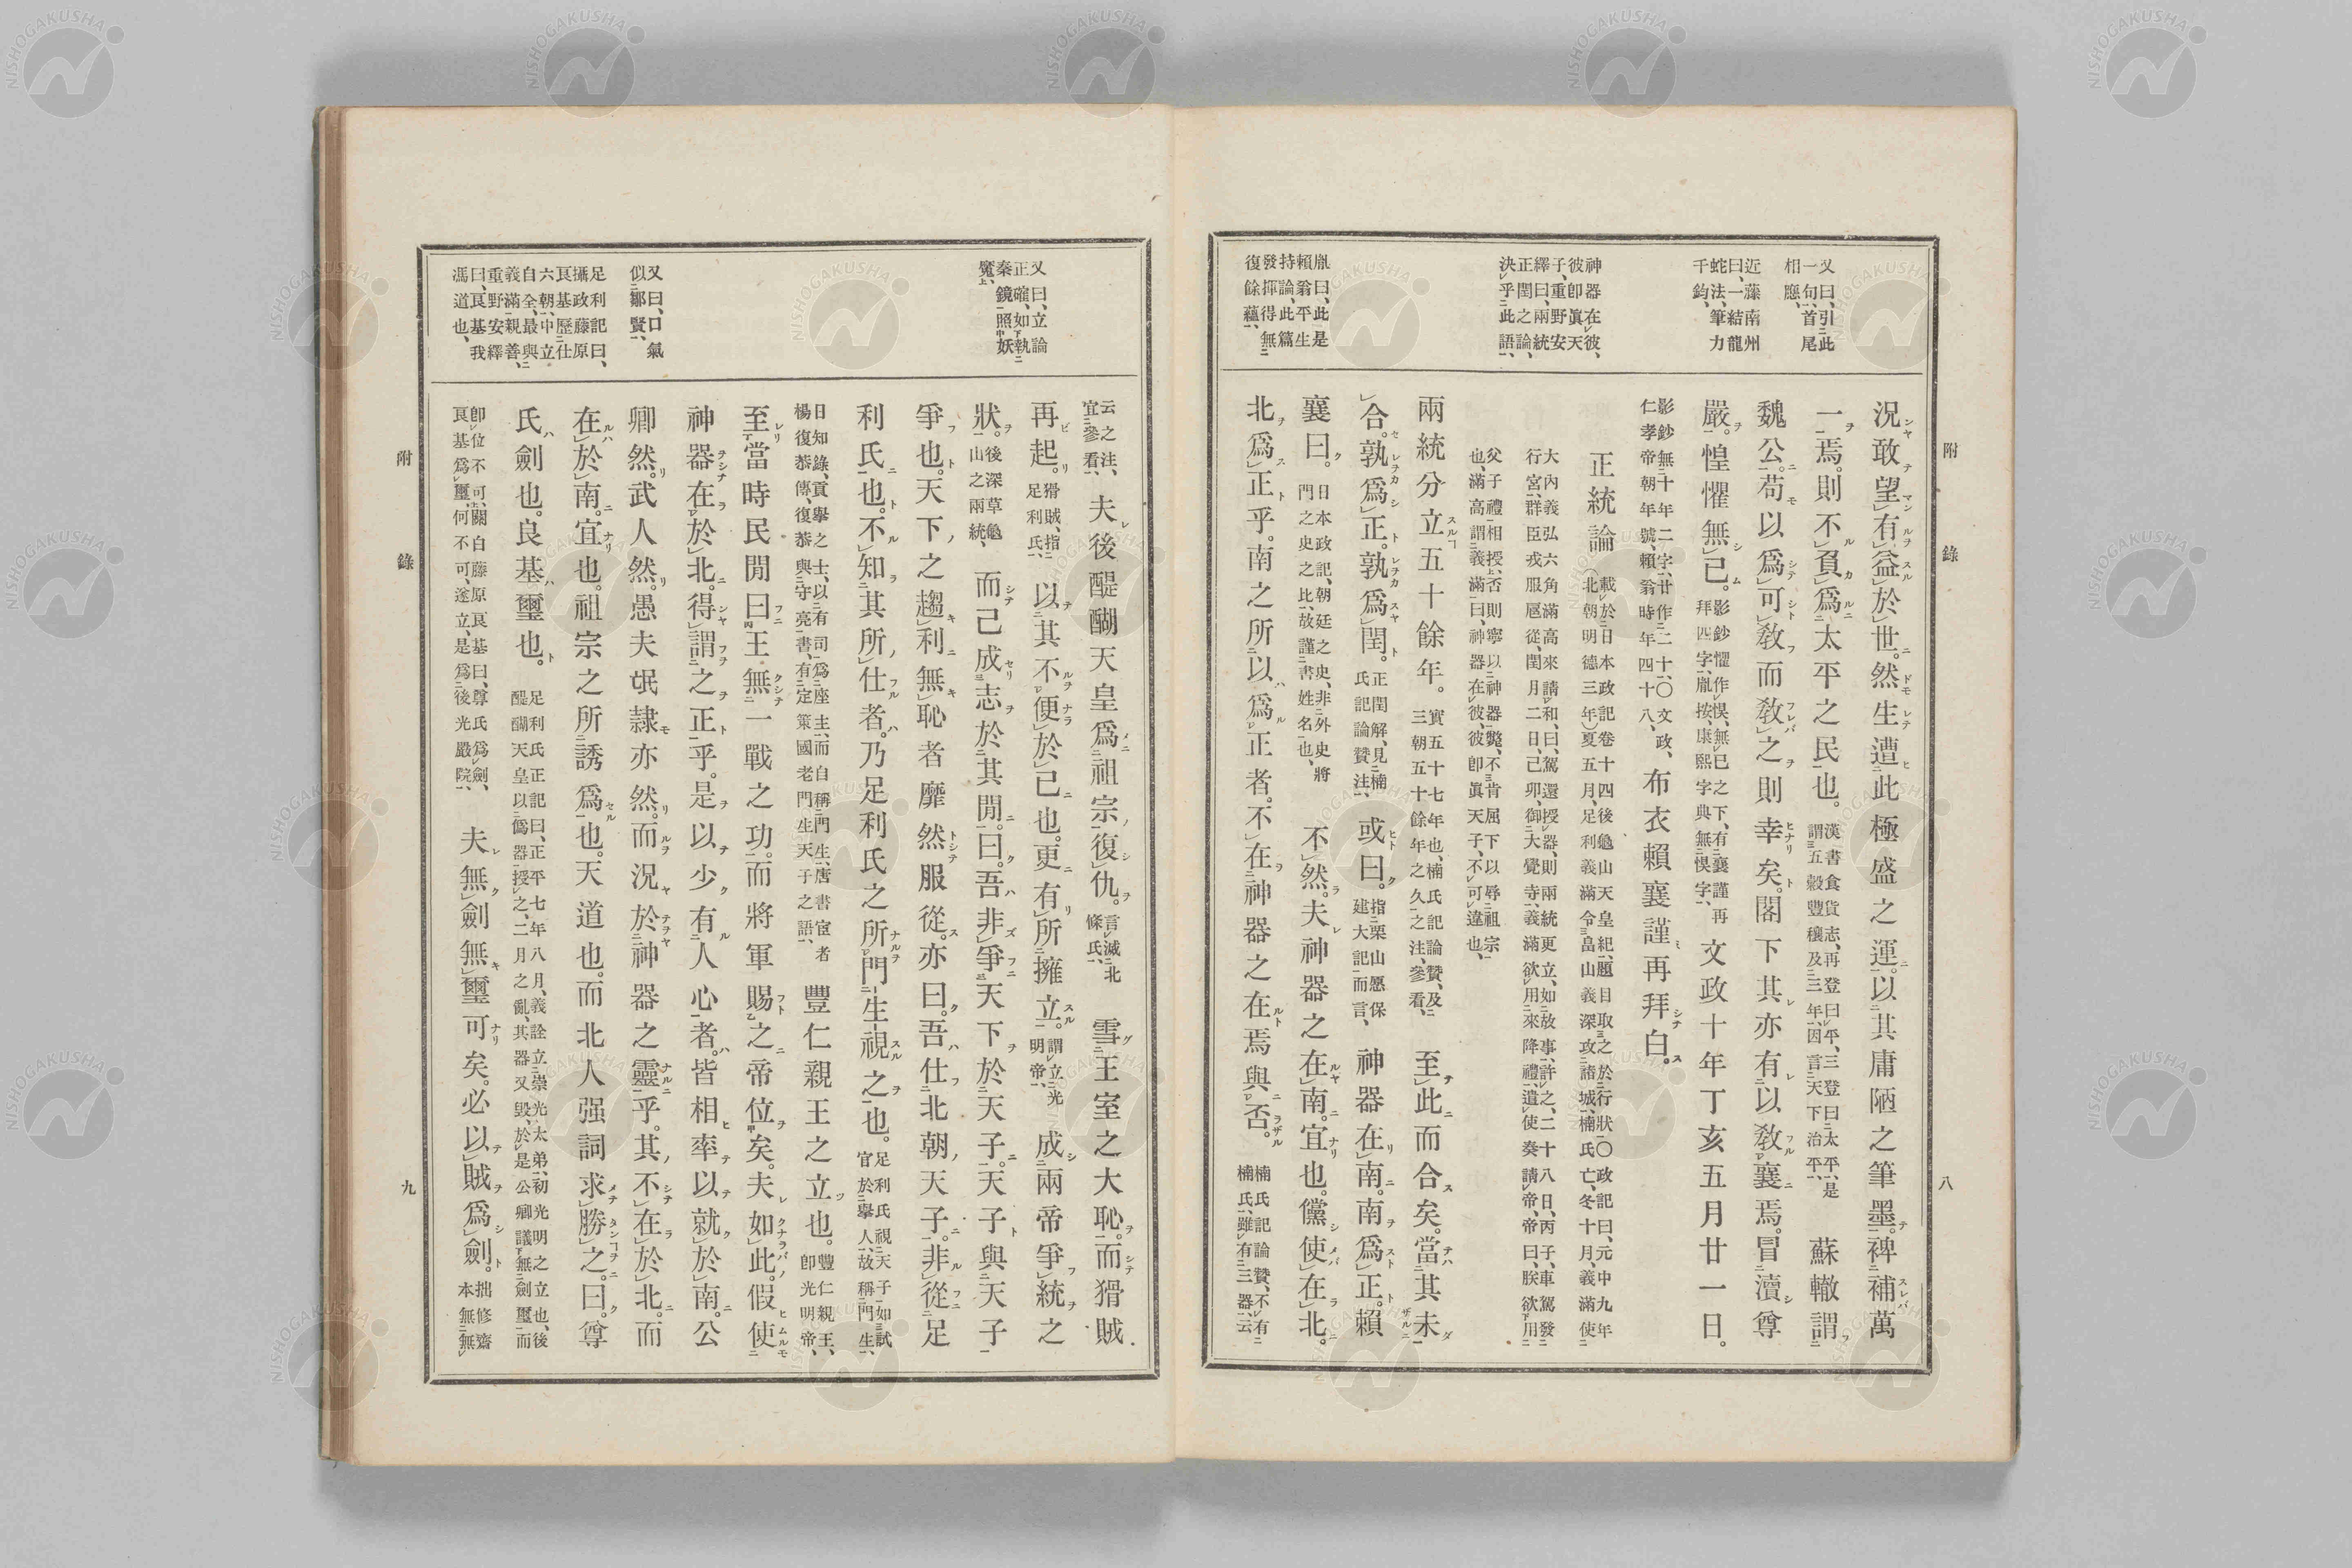 附錄
八
又曰、引此
一句、首尾
相應、
近藤南州
曰、一結龍
蛇法、筆力
千鈞、
神器在彼、
彼卽眞天
子、重野安
繹曰、兩統
正閏之論、
決乎此語、
胤曰、此是
賴翁平生
持論、此篇
發揮得無
復餘蘊、
況敢望有益於世。然生遭此極盛之運。以其庸陋之筆墨。裨補萬
一焉。則不負爲太平之民也。漢書食貨志、再登曰平、三登曰太平、是謂五穀豐穰及三年、因言天下治平、蘇轍謂
魏公。苟以爲可敎而敎之則幸矣。閣下其亦有以敎襄焉。冒瀆尊
嚴。惶懼無已。影鈔懼作悞、無已之下、有襄謹再拜四字、胤按、康熙字典無悞字、文政十年丁亥五月廿一日。
影鈔無十年二字、廿作二十、〇文政、仁孝帝朝年號、賴翁時年四十八、布衣賴襄謹再拜白。
正統論（載於日本政記卷十四後龜山天皇紀、題目取之於行狀〇政記曰、元中九年北朝明德三年）夏五月、足利義滿令畠山義深攻諸城、楠氏亡、冬十月、義滿使
大內義弘六角滿高來請和、曰、駕還授器、則兩統更立、如故事、許之、二十八日、丙子、車駕發行宮、群臣戎服扈從、閏月二日、己卯、御大覺寺、義滿欲用來降禮、遣使奏請帝、帝曰、朕欲用
父子禮相授、否則寧以神器斃、不肯屈下以辱祖宗也、滿高謂義滿曰、神器在彼、彼卽眞天子、不可違也、
兩統分立五十餘年。實五十七年也、楠氏記論贊、及三朝五十餘年之久之注、參看、至此而合矣。當其未
合。孰爲正。孰爲閏。正閏解、見楠氏記論贊注、或曰。指栗山愿保建大記而言、神器在南。南爲正。賴
襄曰。日本政記、朝廷之史、非外史將門之史之比、故謹書姓名也、不然。夫神器之在南。宜也。儻使在北。
北爲正乎。南之所以爲正者。不在神器之在焉與否。楠氏記論贊、不有楠氏、雖有三器云
又曰、立論
正確、如執
秦鏡照妖
魔上、
又曰、口氣
似鄒賢、
足利記曰、
攝政藤原
良基歷仕
六朝、中立
自全、最與
義滿親善、
重野安繹
曰、良基我
馮道也、
云之注、宜參看、夫後醍醐天皇爲祖宗復仇。言滅北條氏、雪王室之大恥。而猾賊
再起。猾賊、指足利氏、以其不便於己也。更有所擁立。謂立光明帝、成兩帝爭統之
狀。後深草龜山之兩統、而己成志於其閒。曰。吾非爭天下於天子。天子與天子
爭也。天下之趨利無恥者靡然服從。亦曰。吾仕北朝天子。非從足
利氏也。不知其所仕者。乃足利氏之所門生視之也。足利氏視天子如試官於擧人、故稱門生、
日知錄、貢擧之士、以有司爲座主、而自稱門生、唐書宦者楊復恭傳、復恭與守亮書、有定策國老門生天子之語、豐仁親王之立也。豐仁親王、卽光明帝、
至當時民閒曰王無一戰之功。而將軍賜之帝位矣。夫如此。假使
神器在於北。得謂之正乎。是以少有人心者。皆相率以就於南。公
卿然。武人然。愚夫氓隷亦然。而況於神器之靈乎。其不在於北。而
在於南。宜也。祖宗之所誘爲也。天道也。而北人强詞求勝之。曰。尊
氏劍也。良基璽也。足利氏正記曰、正平七年八月、義詮立崇光太弟、初光明之立也、後醍醐天皇以僞器授之、二月之亂、其器又毀、於是公卿議無劍璽而
卽位不可、關白藤原良基曰、尊氏爲劍、良基爲璽、何不可、遂立、是爲後光嚴院、夫無劍無璽可矣。必以賊爲劍。拙修齋本無無
附錄
九